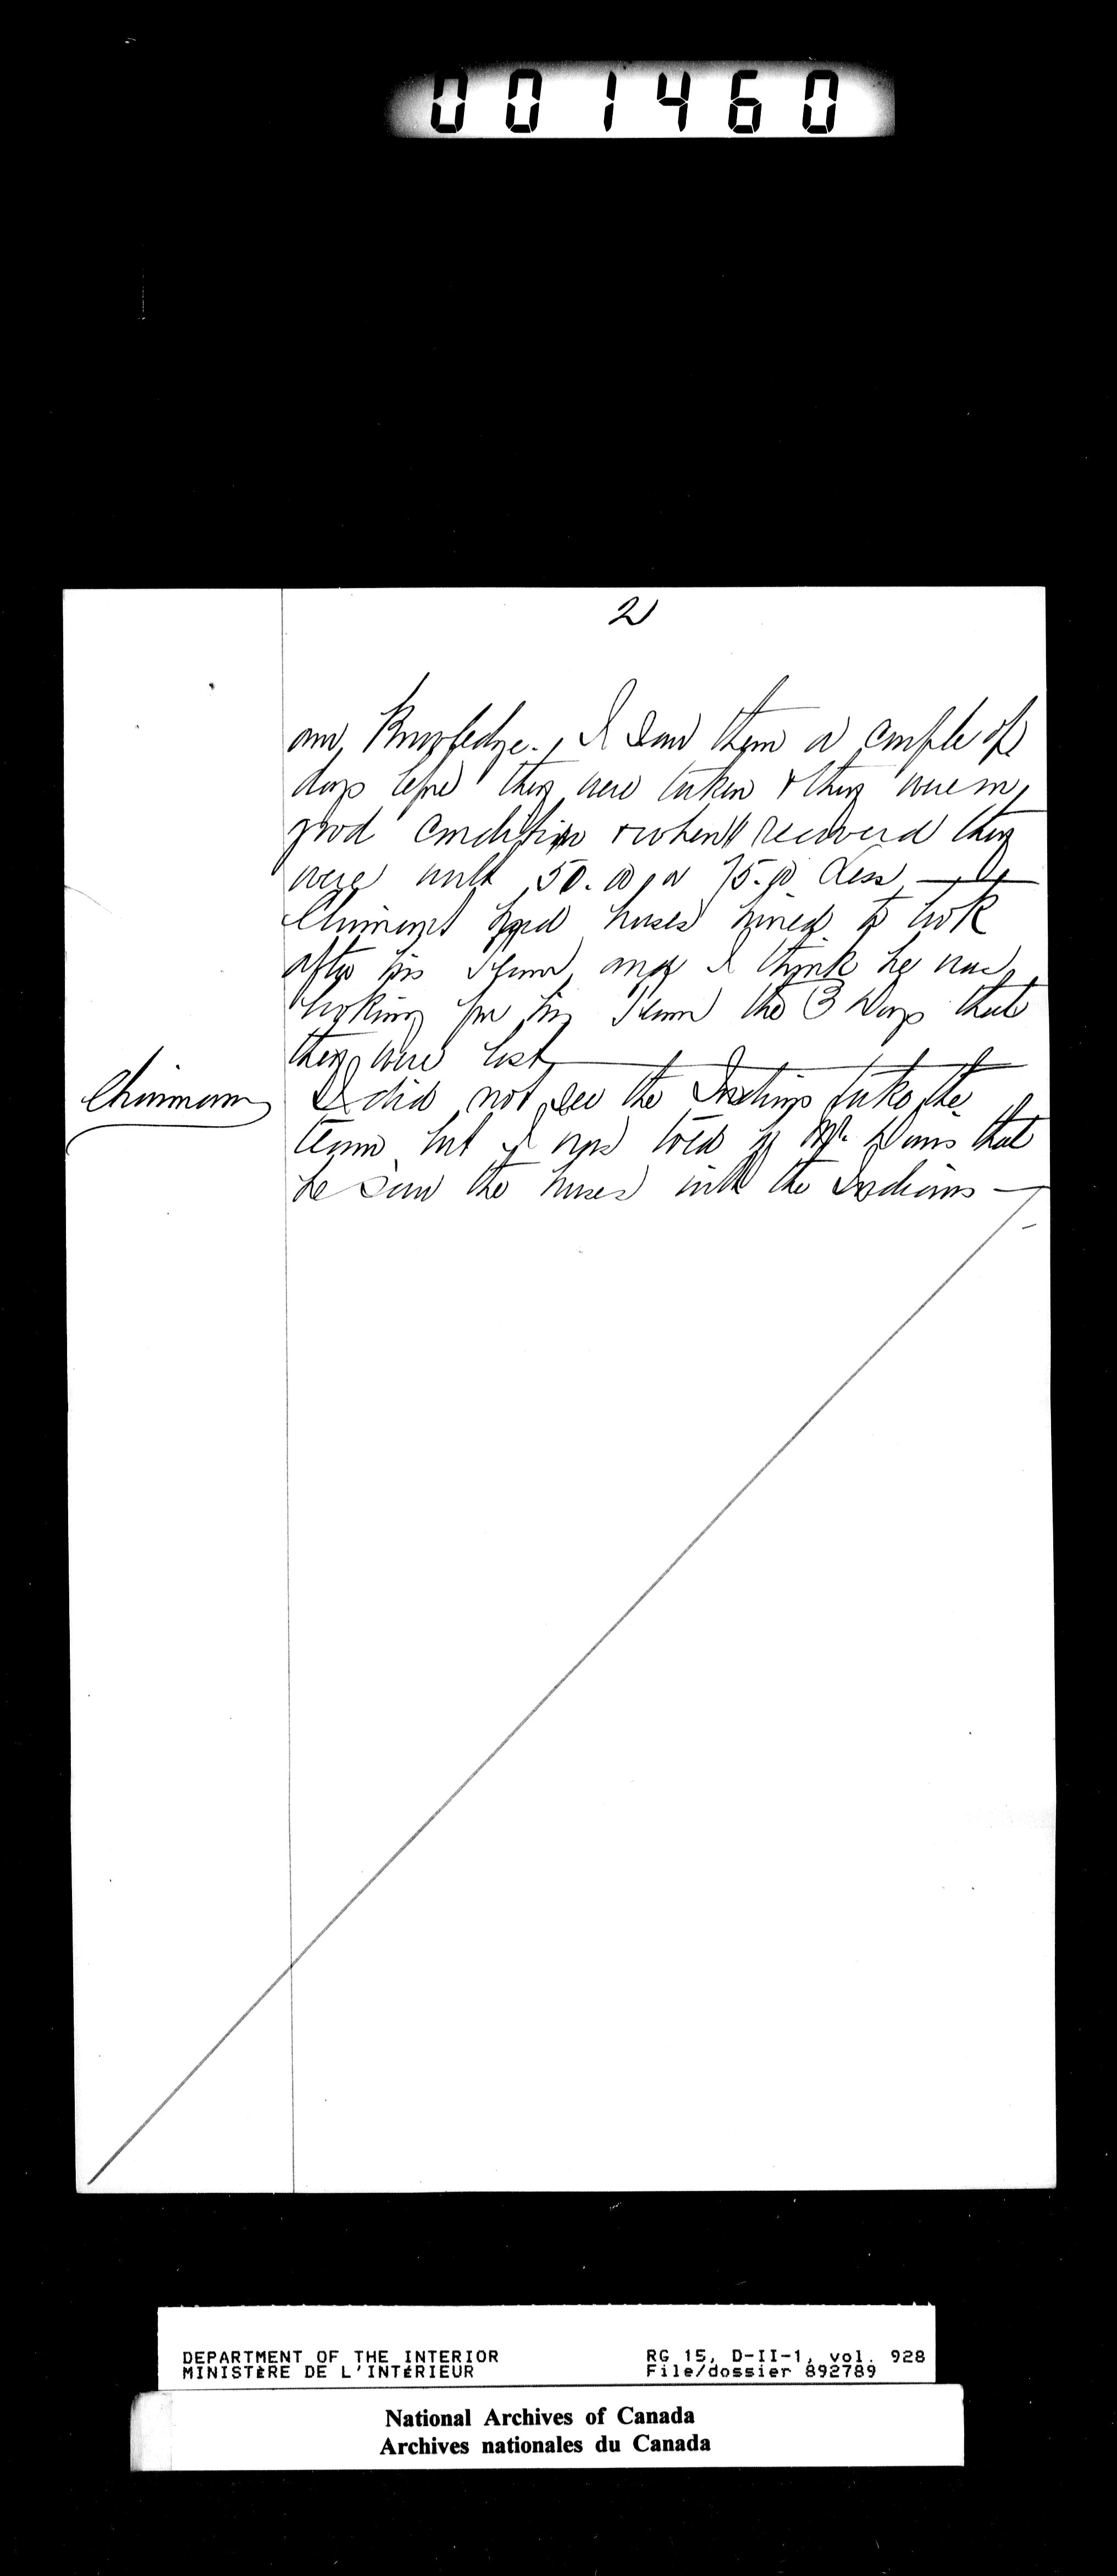 001460
2
own Knowledge. I saw them a couple of
days before they were taken & they were in
good condition & when recovered they
were worth 50.00 or 75.00 Less —
Claimant had horses hired to look
after his Team and I think he was
looking for his Team the 3 Days that
they were lost
Chairman
I did not see the Indians take the
team but I was told by Mr. Davis that
he saw the horses with the Indians —
DEPARTMENT OF THE INTERIOR
MINISTÈRE DE L'INTÉRIEUR
RG 15, D-II-1, vol. 928
File/dossier 892789
National Archives of Canada
Archives nationales du Canada